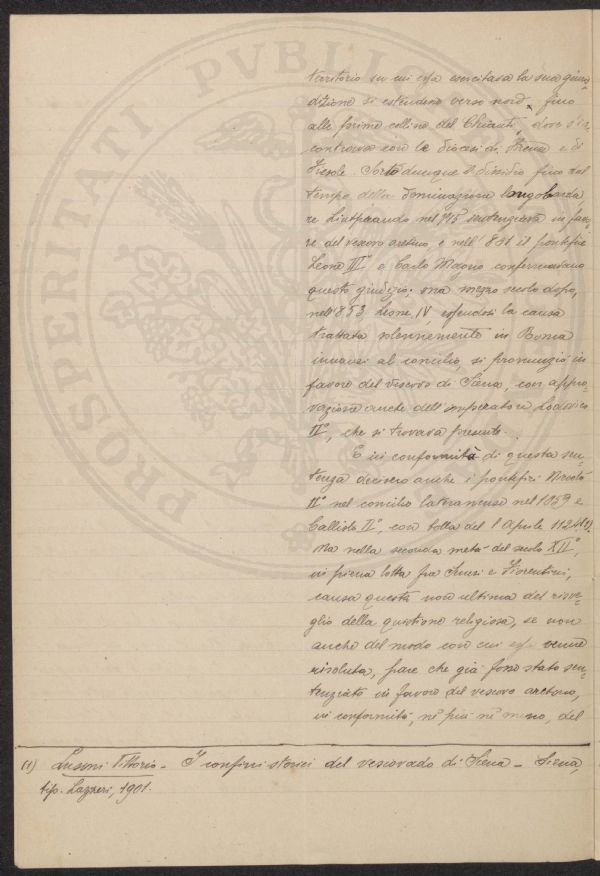 territorio su cui essa esercitava la sua giuri-
dizione si estendeva verso nord, fino
alle prime colline del Chianti, dove s'in
contrava con le diocesi di Firenze e di
Fiesole. Sorto dunque il dissidio fino dal
tempo della dominazione langobarda
re Liutprando nel 715 sentenziava in favo
re del vescovo aretino, e nell'801 il pontefice
Leone III° e Carlo Magno confermavano
questo giudizio; ma mezzo secolo dopo,
nell'853 Leone IV, essendosi la causa
trattata solennemente in Roma
innanzi al concilio, si pronunziò in
favore del vescovo di Siena, con appro-
vazione anche dell'imperatore Lodovico
II°, che si trovava presente.
E in conformità di questa sen-
tenza decisero anche i pontefici Nicolò
II° nel concilio lateranense nel 1059 e
Callisto II°, con bolla del 1 Aprile 1124.(1)
Ma nella seconda metà del secolo XII°,
in piena lotta fra Senesi e Fiorentini,
causa questa non ultima del risve-
glio della questione religiosa, se non
anche del modo con cui essa venne
risoluta, pare che già fosse stato sen-
tenziato in favore del vescovo aretino,
in conformità, nè più nè meno, del
(1) Lusini Vittorio - I confini storici del vescovado di Siena - Siena,
tip. Lazzeri, 1901.
PROSPERITATI PVBLICAE